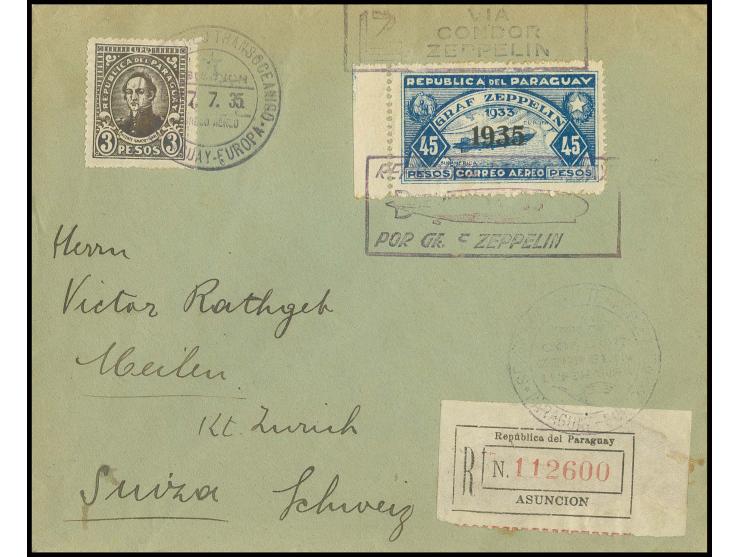 VIA
CONDOR
ZEPPELIN
UPU
REPUBLICA DEL PARAGUAY
3 PESOS 3
TRANSOCEANICO
7. 7. 35.
AEREO
UAY-EUROPA
REPUBLICA DEL PARAGUAY
GRAF ZEPPELIN
1933
1935
45 45
PESOS CORREO AEREO PESOS
POR GR F ZEPPELIN
Herrn
Victor Rathgeb
Meilen
Kt. Zurich
Suiza Schweiz
República del Paraguay
R N. 112600
ASUNCION